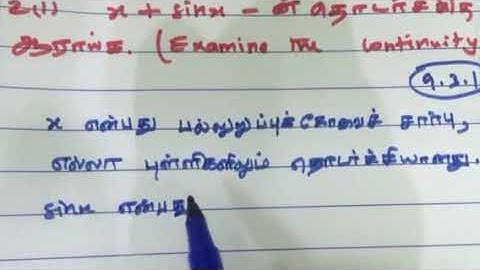 2(1) x + sinx - ன் தொடர்ச்சித்
ஆராய்க. (Examine the continuity
9.3.1
x என்பது பல்லுறுப்புக்கோவைச் சார்பு,
எல்லா புள்ளிகளிலும் தொடர்ச்சியானது.
sinx என்பத